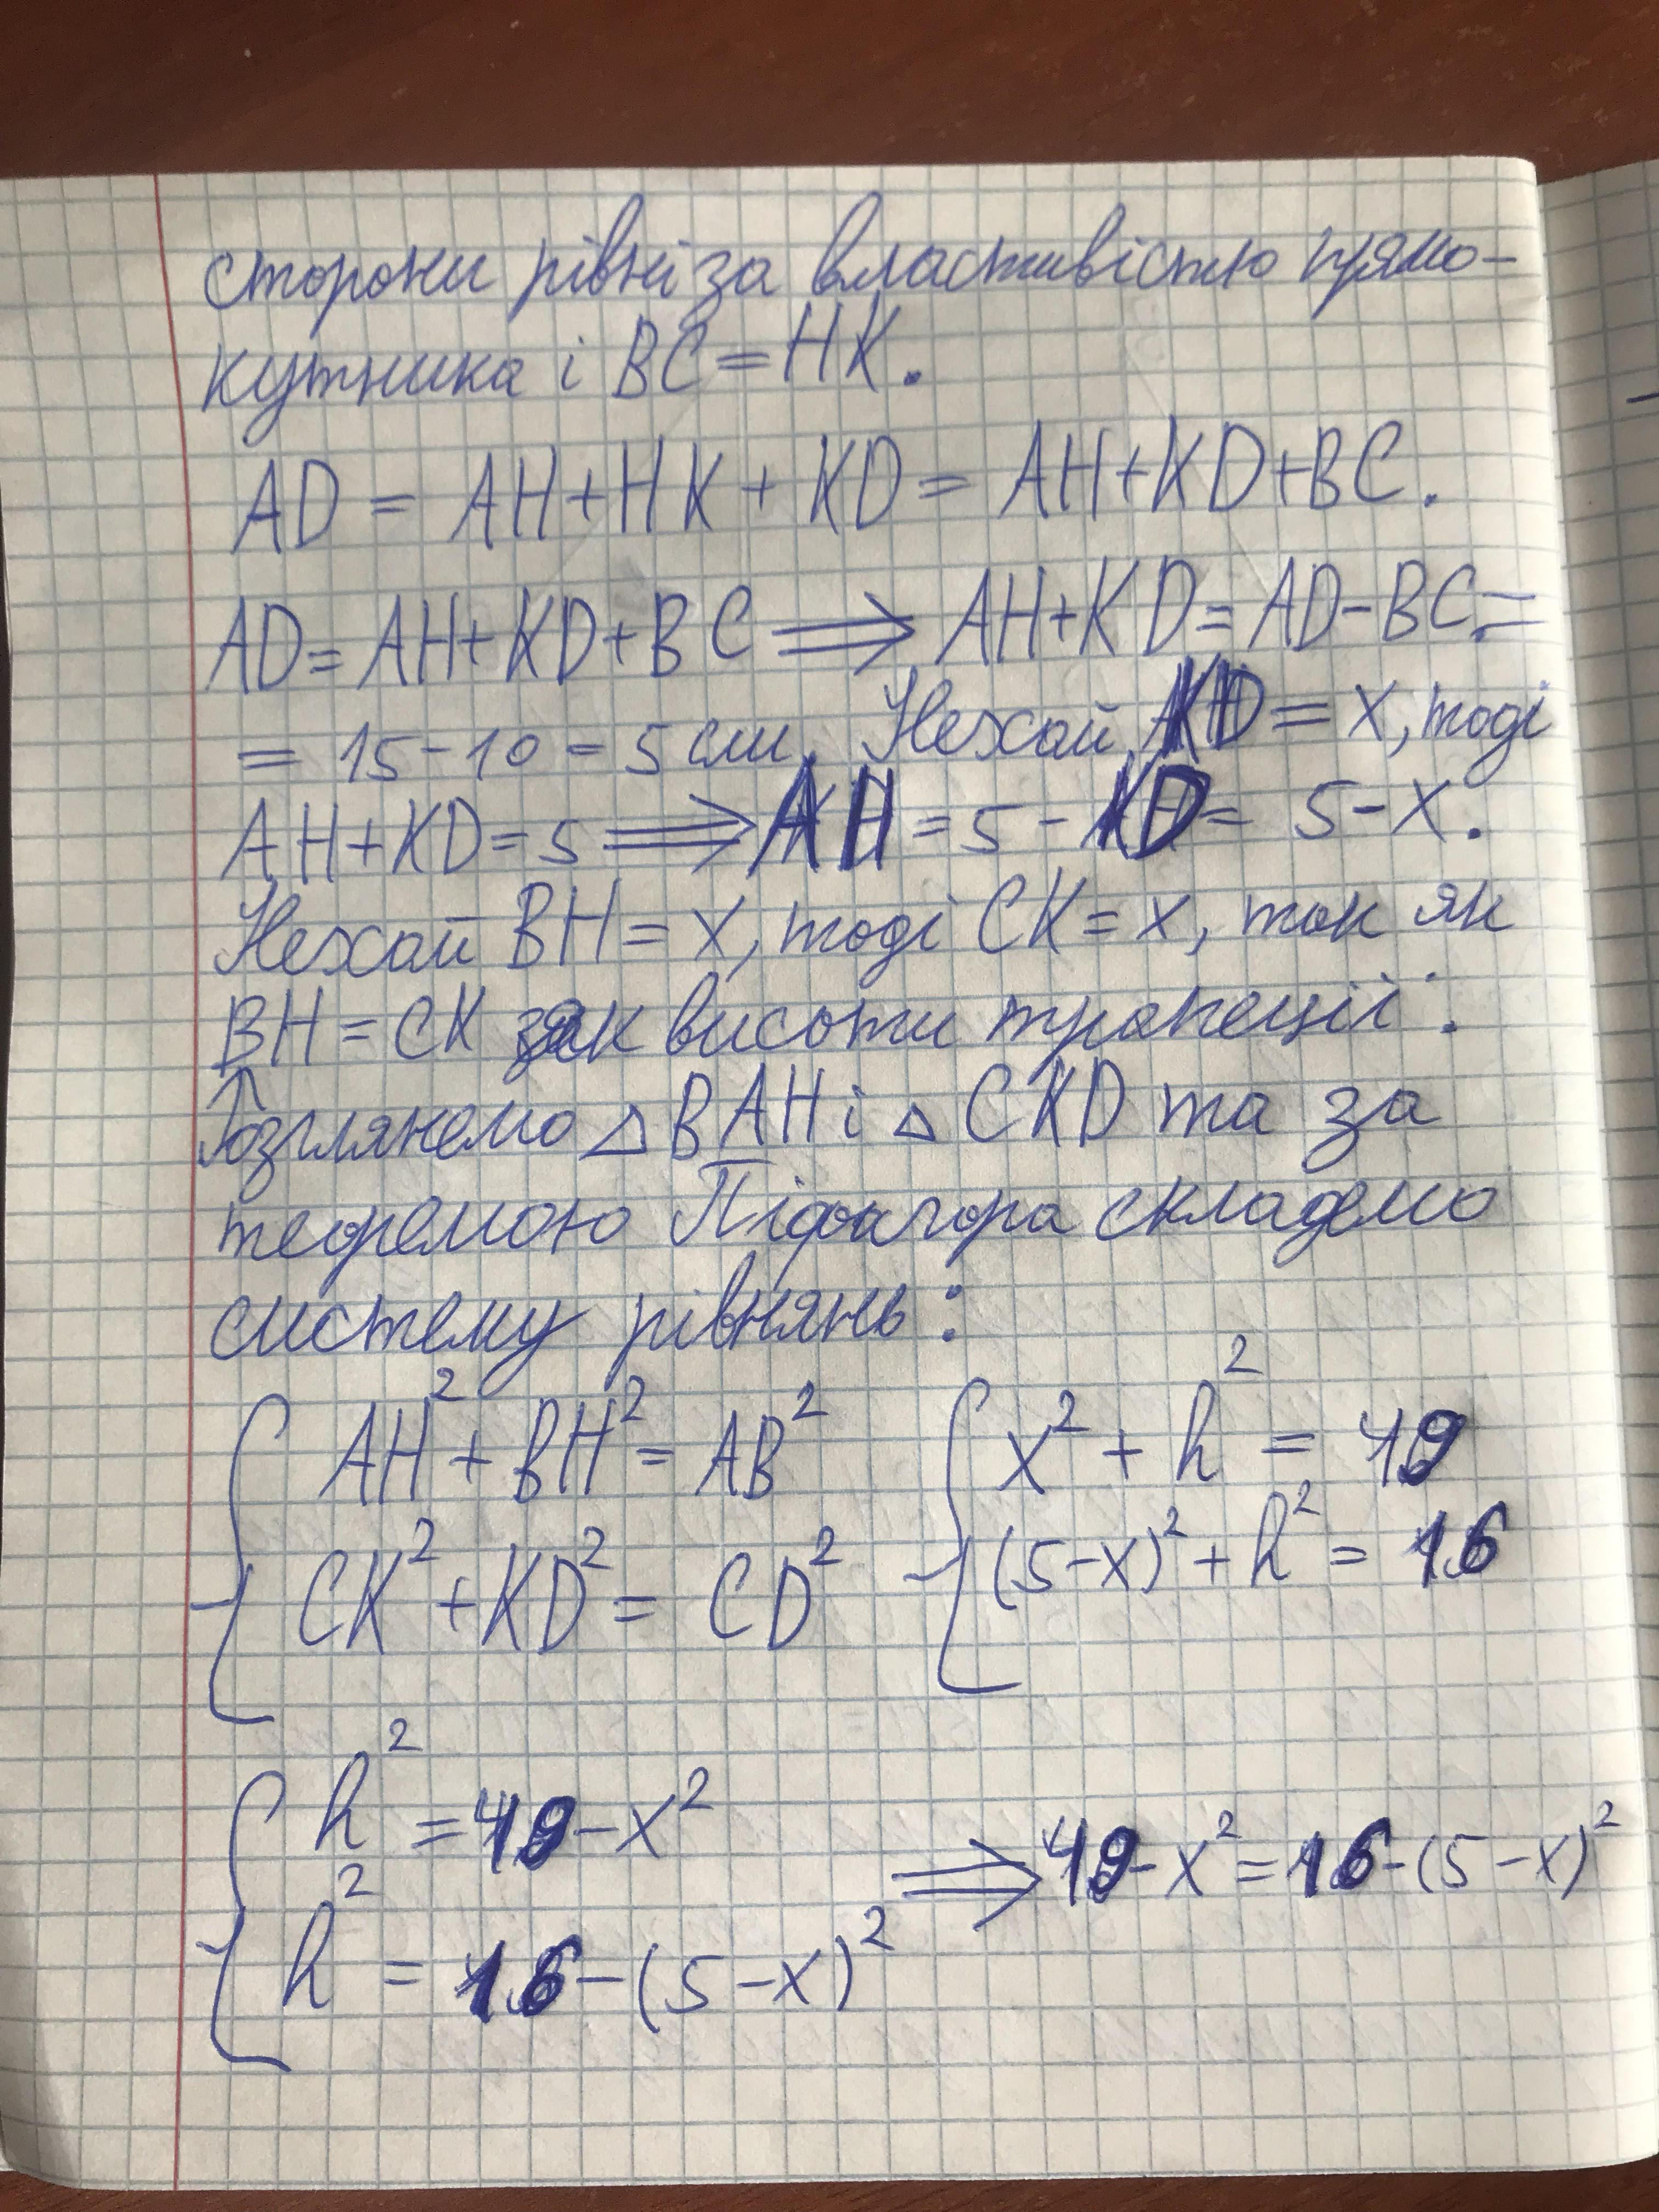 сторони рівні за властивістю прямо-
кутника і BC=HK.
AD = AH+HK+KD = AH+KD+BC.
AD=AH+KD+BC ⟹ AH+KD=AD-BC.=
= 15-10=5см. Нехай KD=x, тоді
AH+KD=5 ⟹ AH=5-KD=5-x.
Нехай BH=x, тоді CK=x, так як
BH=CK як висоти трапеції.
Розглянемо △BAH і △CKD та за
теоремою Піфагора складемо
систему рівнянь:
AH²+BH²=AB² x²+h²=49
CK²+KD²=CD² (5-x)²+h²=16
h²=49-x²
⟹ 49-x²=16-(5-x)²
h²=16-(5-x)²